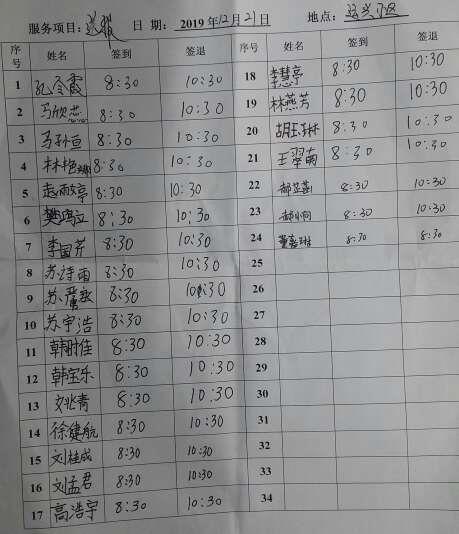 服务项目： 日 期： 2019年12月21日 地点：
序号 姓名 签到 签退 序号 姓名 签到 签退
1 孔冬霞 8:30 10:30 18 李慧亭 8:30 10:30
2 马欣蕊 8:30 10:30 19 林燕芳 8:30 10:30
3 马孙恒 8:30 10:30 20 胡玉琳 8:30 10:30
4 林艳 8:30 10:30 21 王翠萌 8:30 10:30
5 赵雨婷 8:30 10:30 22 8:30 10:30
6 樊鸿立 8:30 10:30 23 8:30 10:30
7 李国芹 8:30 10:30 24 董嘉琳 8:30 8:30
8 苏诗雨 8:30 10:30 25
9 苏 8:30 10:30 26
10 苏宇浩 8:30 10:30 27
11 韩时佳 8:30 10:30 28
12 韩宝乐 8:30 10:30 29
13 刘兆青 8:30 10:30 30
14 徐健航 8:30 10:30 31
15 刘桂成 8:30 10:30 32
16 刘孟君 8:30 10:30 33
17 高浩宇 8:30 10:30 34